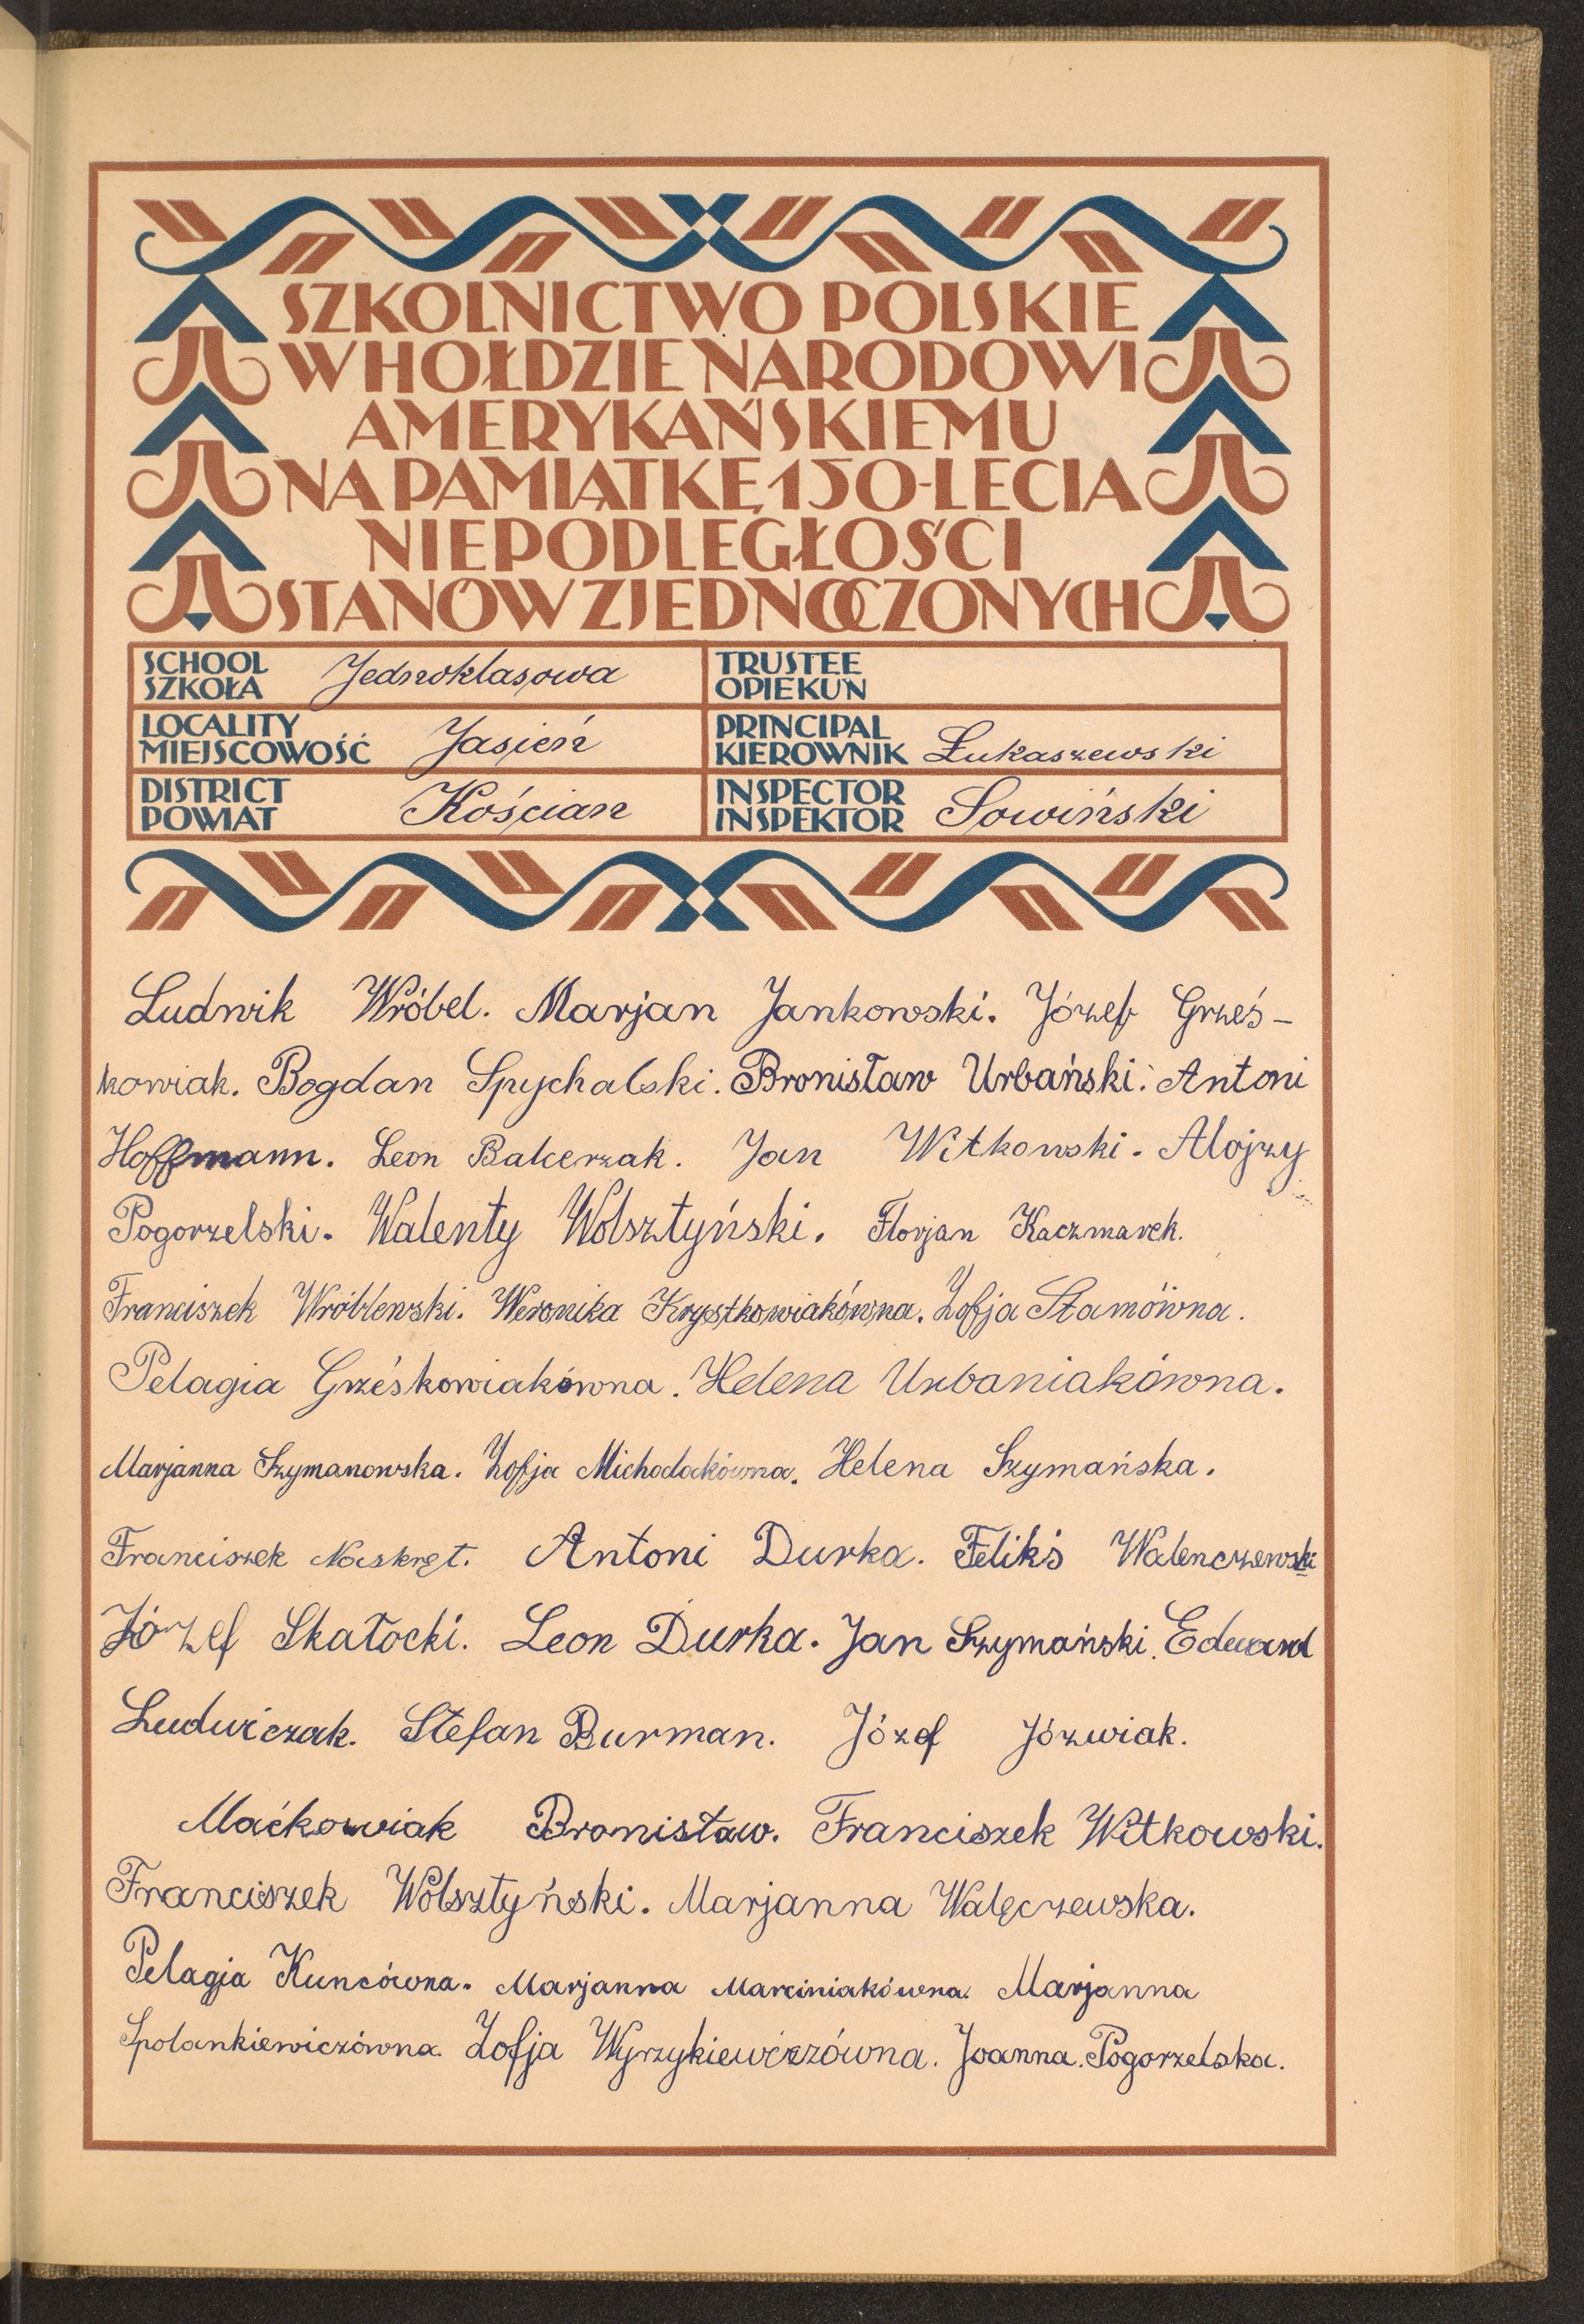 SZKOLNICTWO POLSKIE
W HOŁDZIE NARODOWI
AMERYKAŃSKIEMU
NA PAMIĄTKĘ 150-LECIA
NIEPODLEGŁOŚCI
STANÓW ZJEDNOCZONYCH
SCHOOL
SZKOŁA
Jednoklasowa
TRUSTEE
OPIEKUN
LOCALITY
MIEJSCOWOŚĆ
Jasień
PRINCIPAL
KIEROWNIK
Łukaszewski
DISTRICT
POWIAT
Kościan
INSPECTOR
INSPEKTOR
Sowiński
Ludwik Wróbel. Marjan Jankowski. Józef Grześ-
kowiak. Bogdan Spychalski. Bronisław Urbański. Antoni
Hoffmann. Leon Balcerzak. Jan Witkowski. Alojzy
Pogorzelski. Walenty Wolsztyński. Florjan Kaczmarek.
Franciszek Wróblewski. Weronika Krystkowiakówna. Zofja Stamówna.
Pelagia Grześkowiakówna. Helena Urbaniakówna.
Marjanna Szymanowska. Zofja Michodakówna. Helena Szymańska.
Franciszek Naskręt. Antoni Durka. Feliks Walenczewski
Józef Skałocki. Leon Durka. Jan Szymański. Edward
Ludwiczak. Stefan Burman. Józef Józwiak.
Maćkowiak Bronisław. Franciszek Witkowski.
Franciszek Wolsztyński. Marjanna Walęczewska.
Pelagja Kuncówna. Marjanna Marciniakówna. Marjanna
Spolankiewiczówna. Zofja Wyrzykiewiczówna. Joanna. Pogorzelska.